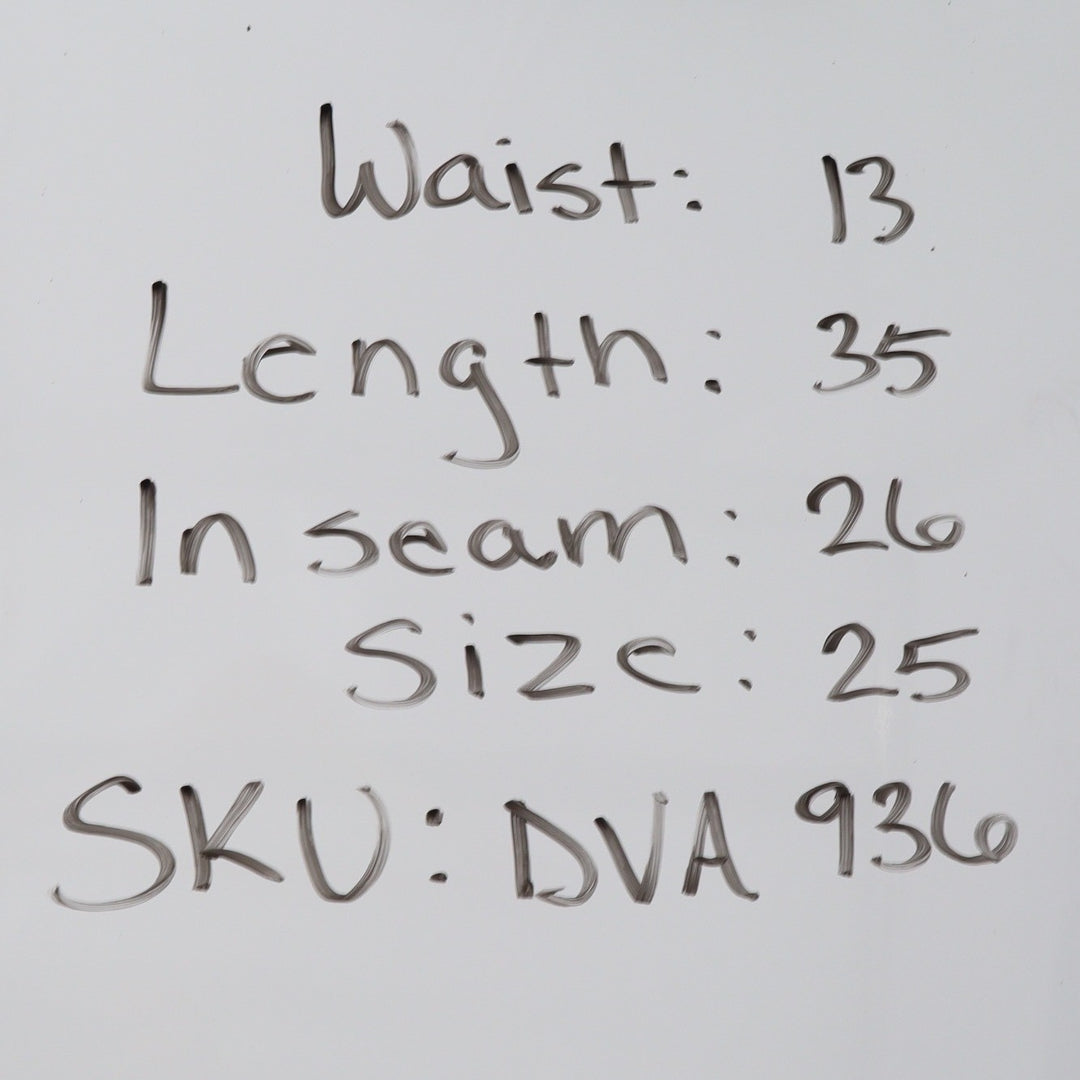 Waist: 13
Length: 35
Inseam: 26
Size: 25
SKU: DVA 936